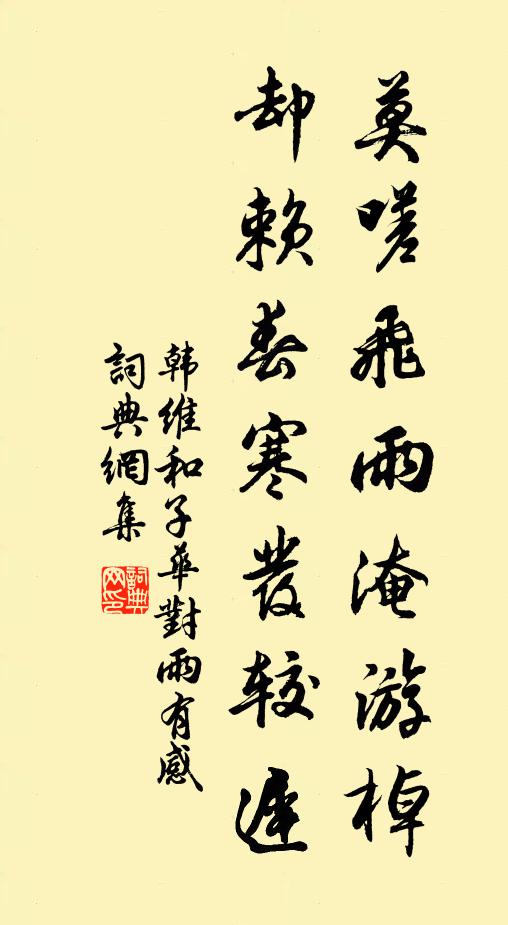 莫嗟飛雨淹游棹
却賴春寒發較遲
韩維和子華對雨有感
詞典網集
詞典
网印